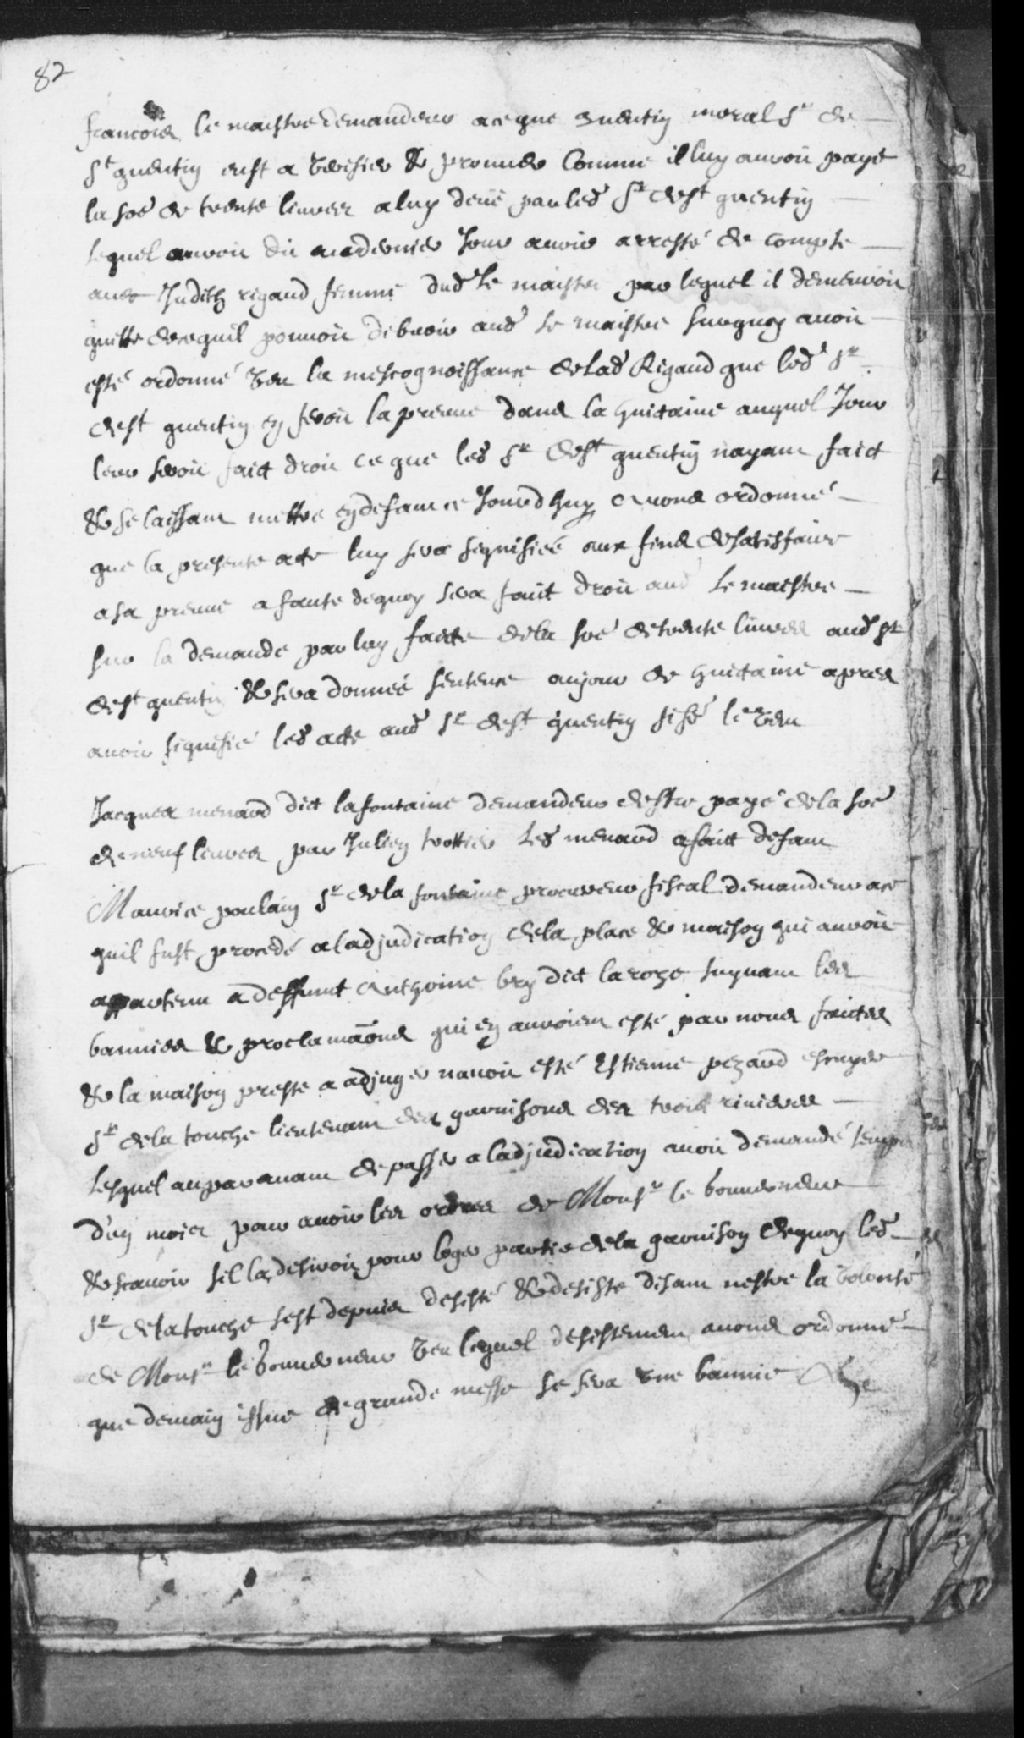 82
francois le maistre demandeur a ce que quentin moral sr de
st quentin eust a verifier & prouver Comme il luy avoit payé
la soe de trente livres a luy deüe par led sr de st quentin
Lequel avoit dit au dernier Jour avoir arresté de compte
avec Judith rigaud femme dud le maistre par lequel il demeuroit
quitte de ce quil pouvoit debvoir aud le maistre surquoy avoit
esté ordonné veu la mescognoissance de lad Rigaud que led sr
de st quentin en feroit la preuve dans la huitaine auquel Jour
leur seroit faict droit ce que led sr de st quentin nayant faict
& se laissant mettre en defaut ce Jourdhuy avons ordonné
que la presente acte luy sera signifiée aux fins de satisfaire
a sa preuve a faute dequoy sera fait droit aud le maistre
sur la demande par luy faicte de la soe de trente livres aud sr
de st quentin & sera donnée sentence au jour de huitaine apres
avoir signifié led acte aud sr de st quentin
Jacques menard dict lafontaine demandeur destre payé de la soe
de neuf livres par Julien trottier Led menard a faict defaut
Maurice poulain sr de la fontaine procureur fiscal demandeur a ce
quil fust procedé a ladjudication de la place & maison qui avoit
appartenu a deffunct Anthoine bry dict la roze suyvant les
bannies & proclamaons qui en avoient esté par nous faictes
& la maison preste a adjuger navoit esté Estienne pezard escuyer
sr de la touche lieutenant des garnisons des trois rivieres
Lequel auparavant de passer a ladjudication avoit demandé temps
d'un mois pour avoir les ordres de Monsr le Gouverneur
& scavoir sil la desiroit pour loger partie de la garnison dequoy led
sr de la touche sest depuis desisté & desiste disant nestre la volonté
de Monsr le Gouverneur veu lequel desistement avons ordonné
que demain issue de grande messe se fera une bannie